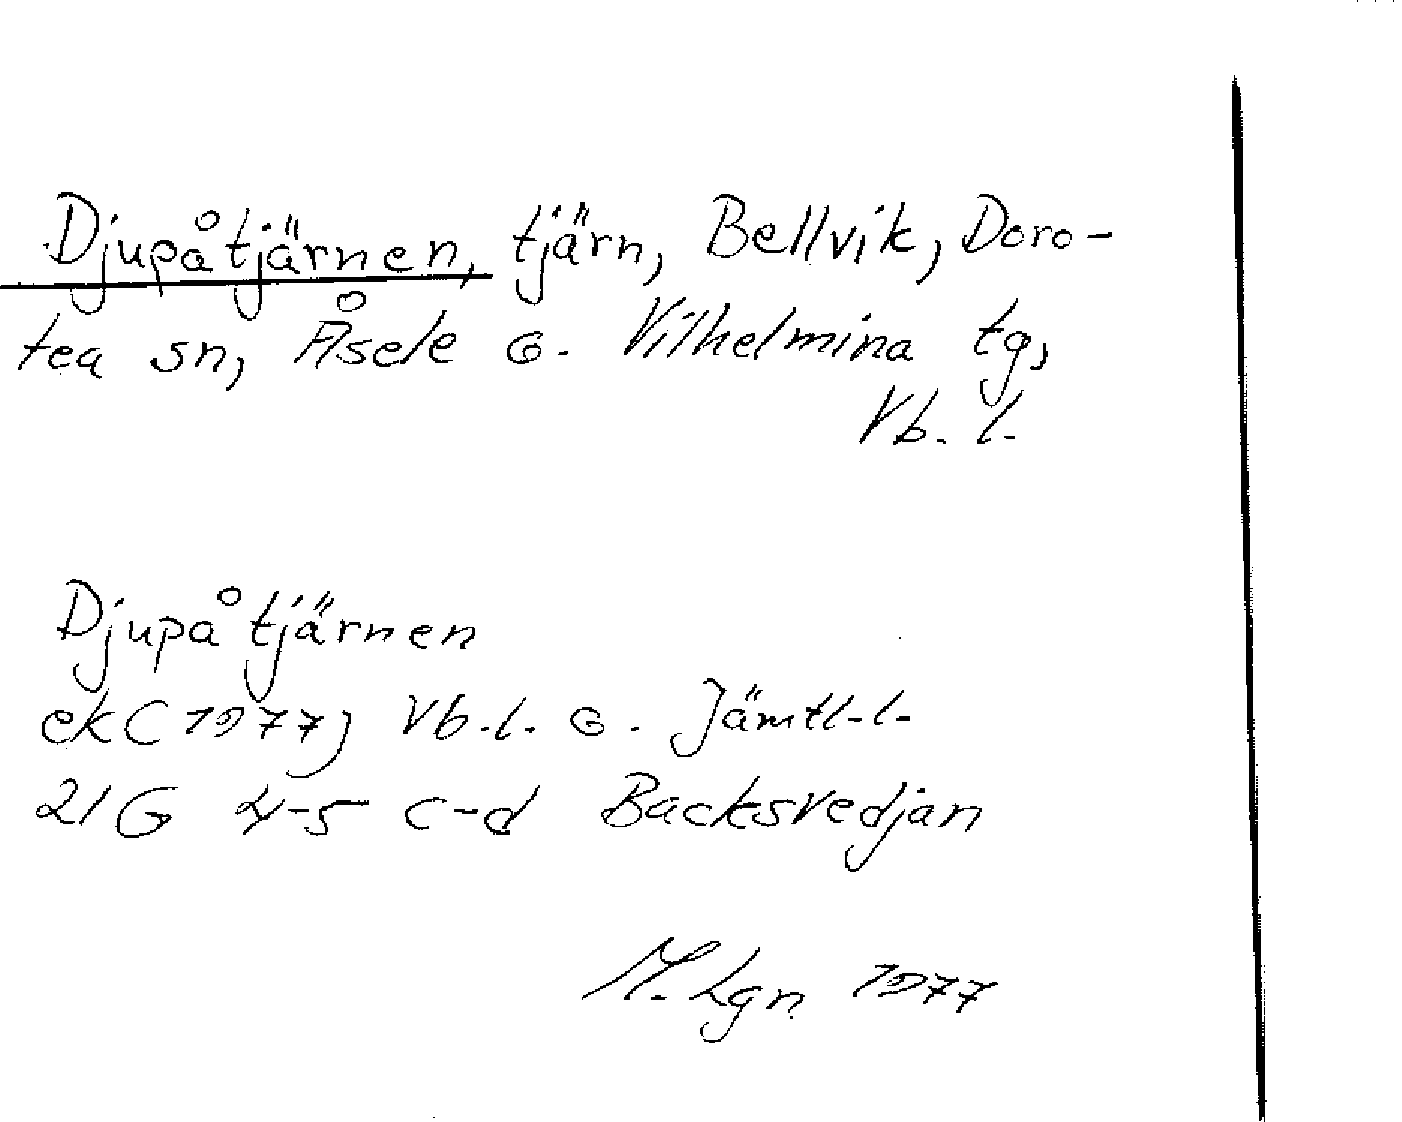 Djupåtjärnen, tjärn, Bellvik, Doro-
tea sn, Åsele o. Vilhelmina tg,
Vb. l.
Djupåtjärnen
ek (1977) Vb. l. o. Jämtl. l.
21 G 4-5 c-d Backsvedjan
M. Lgn 1977